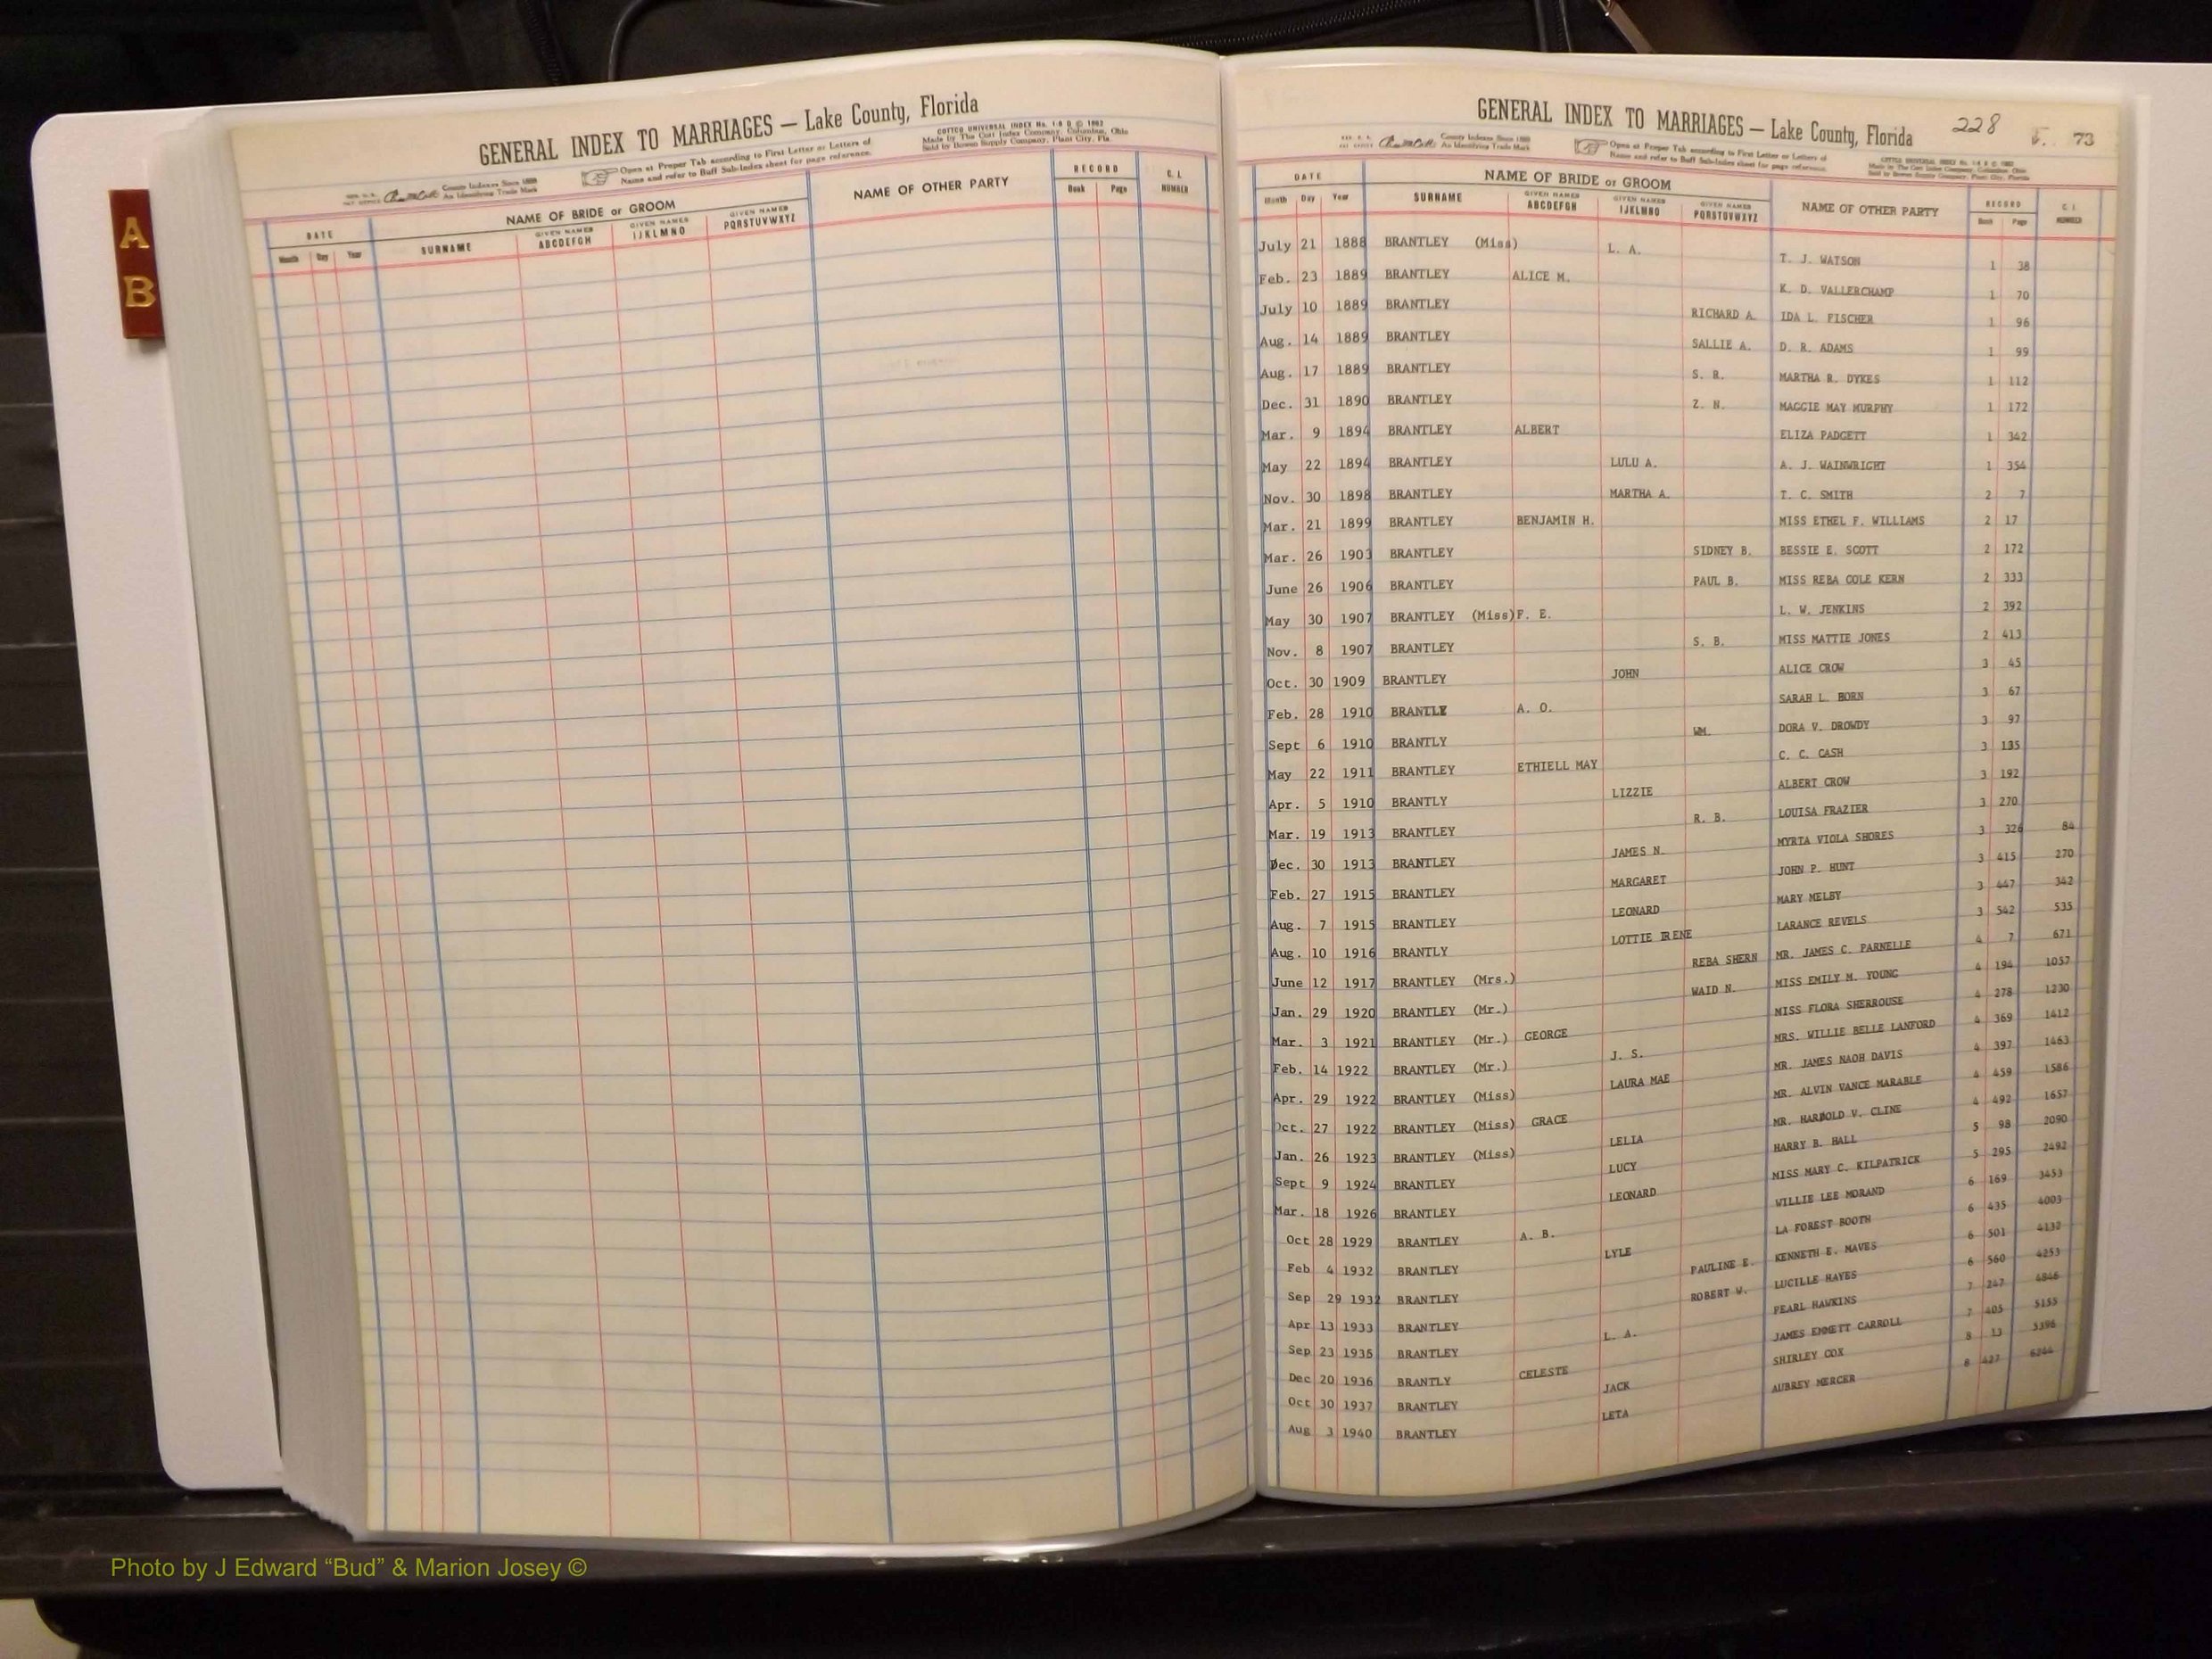 A
B
GENERAL INDEX TO MARRIAGES — Lake County, Florida
COTTCO UNIVERSAL INDEX No. 1-8 D © 1962
Made by The Cott Index Company, Columbus, Ohio
Sold by Bowen Supply Company, Plant City, Fla.
County Indexes Since 1888
An Identifying Trade Mark
Open at Proper Tab according to First Letter or Letters of
Name and refer to Buff Sub-Index sheet for page reference.
DATE NAME OF BRIDE or GROOM NAME OF OTHER PARTY RECORD C. I. NUMBER
Month Day Year SURNAME GIVEN NAMES ABCDEFGH GIVEN NAMES IJKLMNO GIVEN NAMES PQRSTUVWXYZ Book Page
GENERAL INDEX TO MARRIAGES — Lake County, Florida 228 73
County Indexes Since 1888
An Identifying Trade Mark
Open at Proper Tab according to First Letter or Letters of
Name and refer to Buff Sub-Index sheet for page reference.
DATE NAME OF BRIDE or GROOM NAME OF OTHER PARTY RECORD C. I. NUMBER
Month Day Year SURNAME GIVEN NAMES ABCDEFGH GIVEN NAMES IJKLMNO GIVEN NAMES PQRSTUVWXYZ Book Page
July 21 1888 BRANTLEY (Miss) L. A. T. J. WATSON 1 38
Feb. 23 1889 BRANTLEY ALICE M. K. D. VALLERCHAMP 1 70
July 10 1889 BRANTLEY RICHARD A. IDA L. FISCHER 1 96
Aug. 14 1889 BRANTLEY SALLIE A. D. R. ADAMS 1 99
Aug. 17 1889 BRANTLEY S. R. MARTHA R. DYKES 1 112
Dec. 31 1890 BRANTLEY Z. N. MAGGIE MAY MURPHY 1 172
Mar. 9 1894 BRANTLEY ALBERT ELIZA PADGETT 1 342
May 22 1894 BRANTLEY LULU A. A. J. WAINWRIGHT 1 354
Nov. 30 1898 BRANTLEY MARTHA A. T. C. SMITH 2 7
Mar. 21 1899 BRANTLEY BENJAMIN H. MISS ETHEL F. WILLIAMS 2 17
Mar. 26 1903 BRANTLEY SIDNEY B. BESSIE E. SCOTT 2 172
June 26 1906 BRANTLEY PAUL B. MISS REBA COLE KERN 2 333
May 30 1907 BRANTLEY (Miss) F. E. L. W. JENKINS 2 392
Nov. 8 1907 BRANTLEY S. B. MISS MATTIE JONES 2 413
Oct. 30 1909 BRANTLEY JOHN ALICE CROW 3 45
Feb. 28 1910 BRANTLE A. O. SARAH L. BORN 3 67
Sept 6 1910 BRANTLY WM. DORA V. DROWDY 3 97
May 22 1911 BRANTLEY ETHIELL MAY C. C. CASH 3 135
Apr. 5 1910 BRANTLY LIZZIE ALBERT CROW 3 192
Mar. 19 1913 BRANTLEY R. B. LOUISA FRAZIER 3 270
Dec. 30 1913 BRANTLEY JAMES N. MYRTA VIOLA SHORES 3 326 84
Feb. 27 1915 BRANTLEY MARGARET JOHN P. HUNT 3 415 270
Aug. 7 1915 BRANTLEY LEONARD MARY MELBY 3 447 342
Aug. 10 1916 BRANTLY LOTTIE IRENE LARANCE REVELS 3 542 535
June 12 1917 BRANTLEY (Mrs.) REBA SHERN MR. JAMES C. PARNELLE 4 7 671
Jan. 29 1920 BRANTLEY (Mr.) WAID N. MISS EMILY M. YOUNG 4 194 1057
Mar. 3 1921 BRANTLEY (Mr.) GEORGE MISS FLORA SHERROUSE 4 278 1230
Feb. 14 1922 BRANTLEY (Mr.) J. S. MRS. WILLIE BELLE LANFORD 4 369 1412
Apr. 29 1922 BRANTLEY (Miss) LAURA MAE MR. JAMES NAOH DAVIS 4 397 1463
Oct. 27 1922 BRANTLEY (Miss) GRACE MR. ALVIN VANCE MARABLE 4 459 1586
Jan. 26 1923 BRANTLEY (Miss) LELIA MR. HAROLD V. CLINE 4 492 1657
Sept 9 1924 BRANTLEY LUCY HARRY B. HALL 5 98 2090
Mar. 18 1926 BRANTLEY LEONARD MISS MARY C. KILPATRICK 5 295 2492
Oct 28 1929 BRANTLEY A. B. WILLIE LEE MORAND 6 169 3453
Feb 4 1932 BRANTLEY LYLE LA FOREST BOOTH 6 435 4003
Sep 29 1932 BRANTLEY PAULINE E. KENNETH E. MAVES 6 501 4132
Apr 13 1933 BRANTLEY ROBERT W. LUCILLE HAYES 6 560 4253
Sep 23 1935 BRANTLEY L. A. PEARL HAWKINS 7 247 4846
Dec 20 1936 BRANTLY CELESTE JAMES EMMETT CARROLL 7 405 5155
Oct 30 1937 BRANTLEY JACK SHIRLEY COX 8 13 5396
Aug 3 1940 BRANTLEY LETA AUBREY MERCER 8 427 6244
Photo by J Edward “Bud” & Marion Josey ©